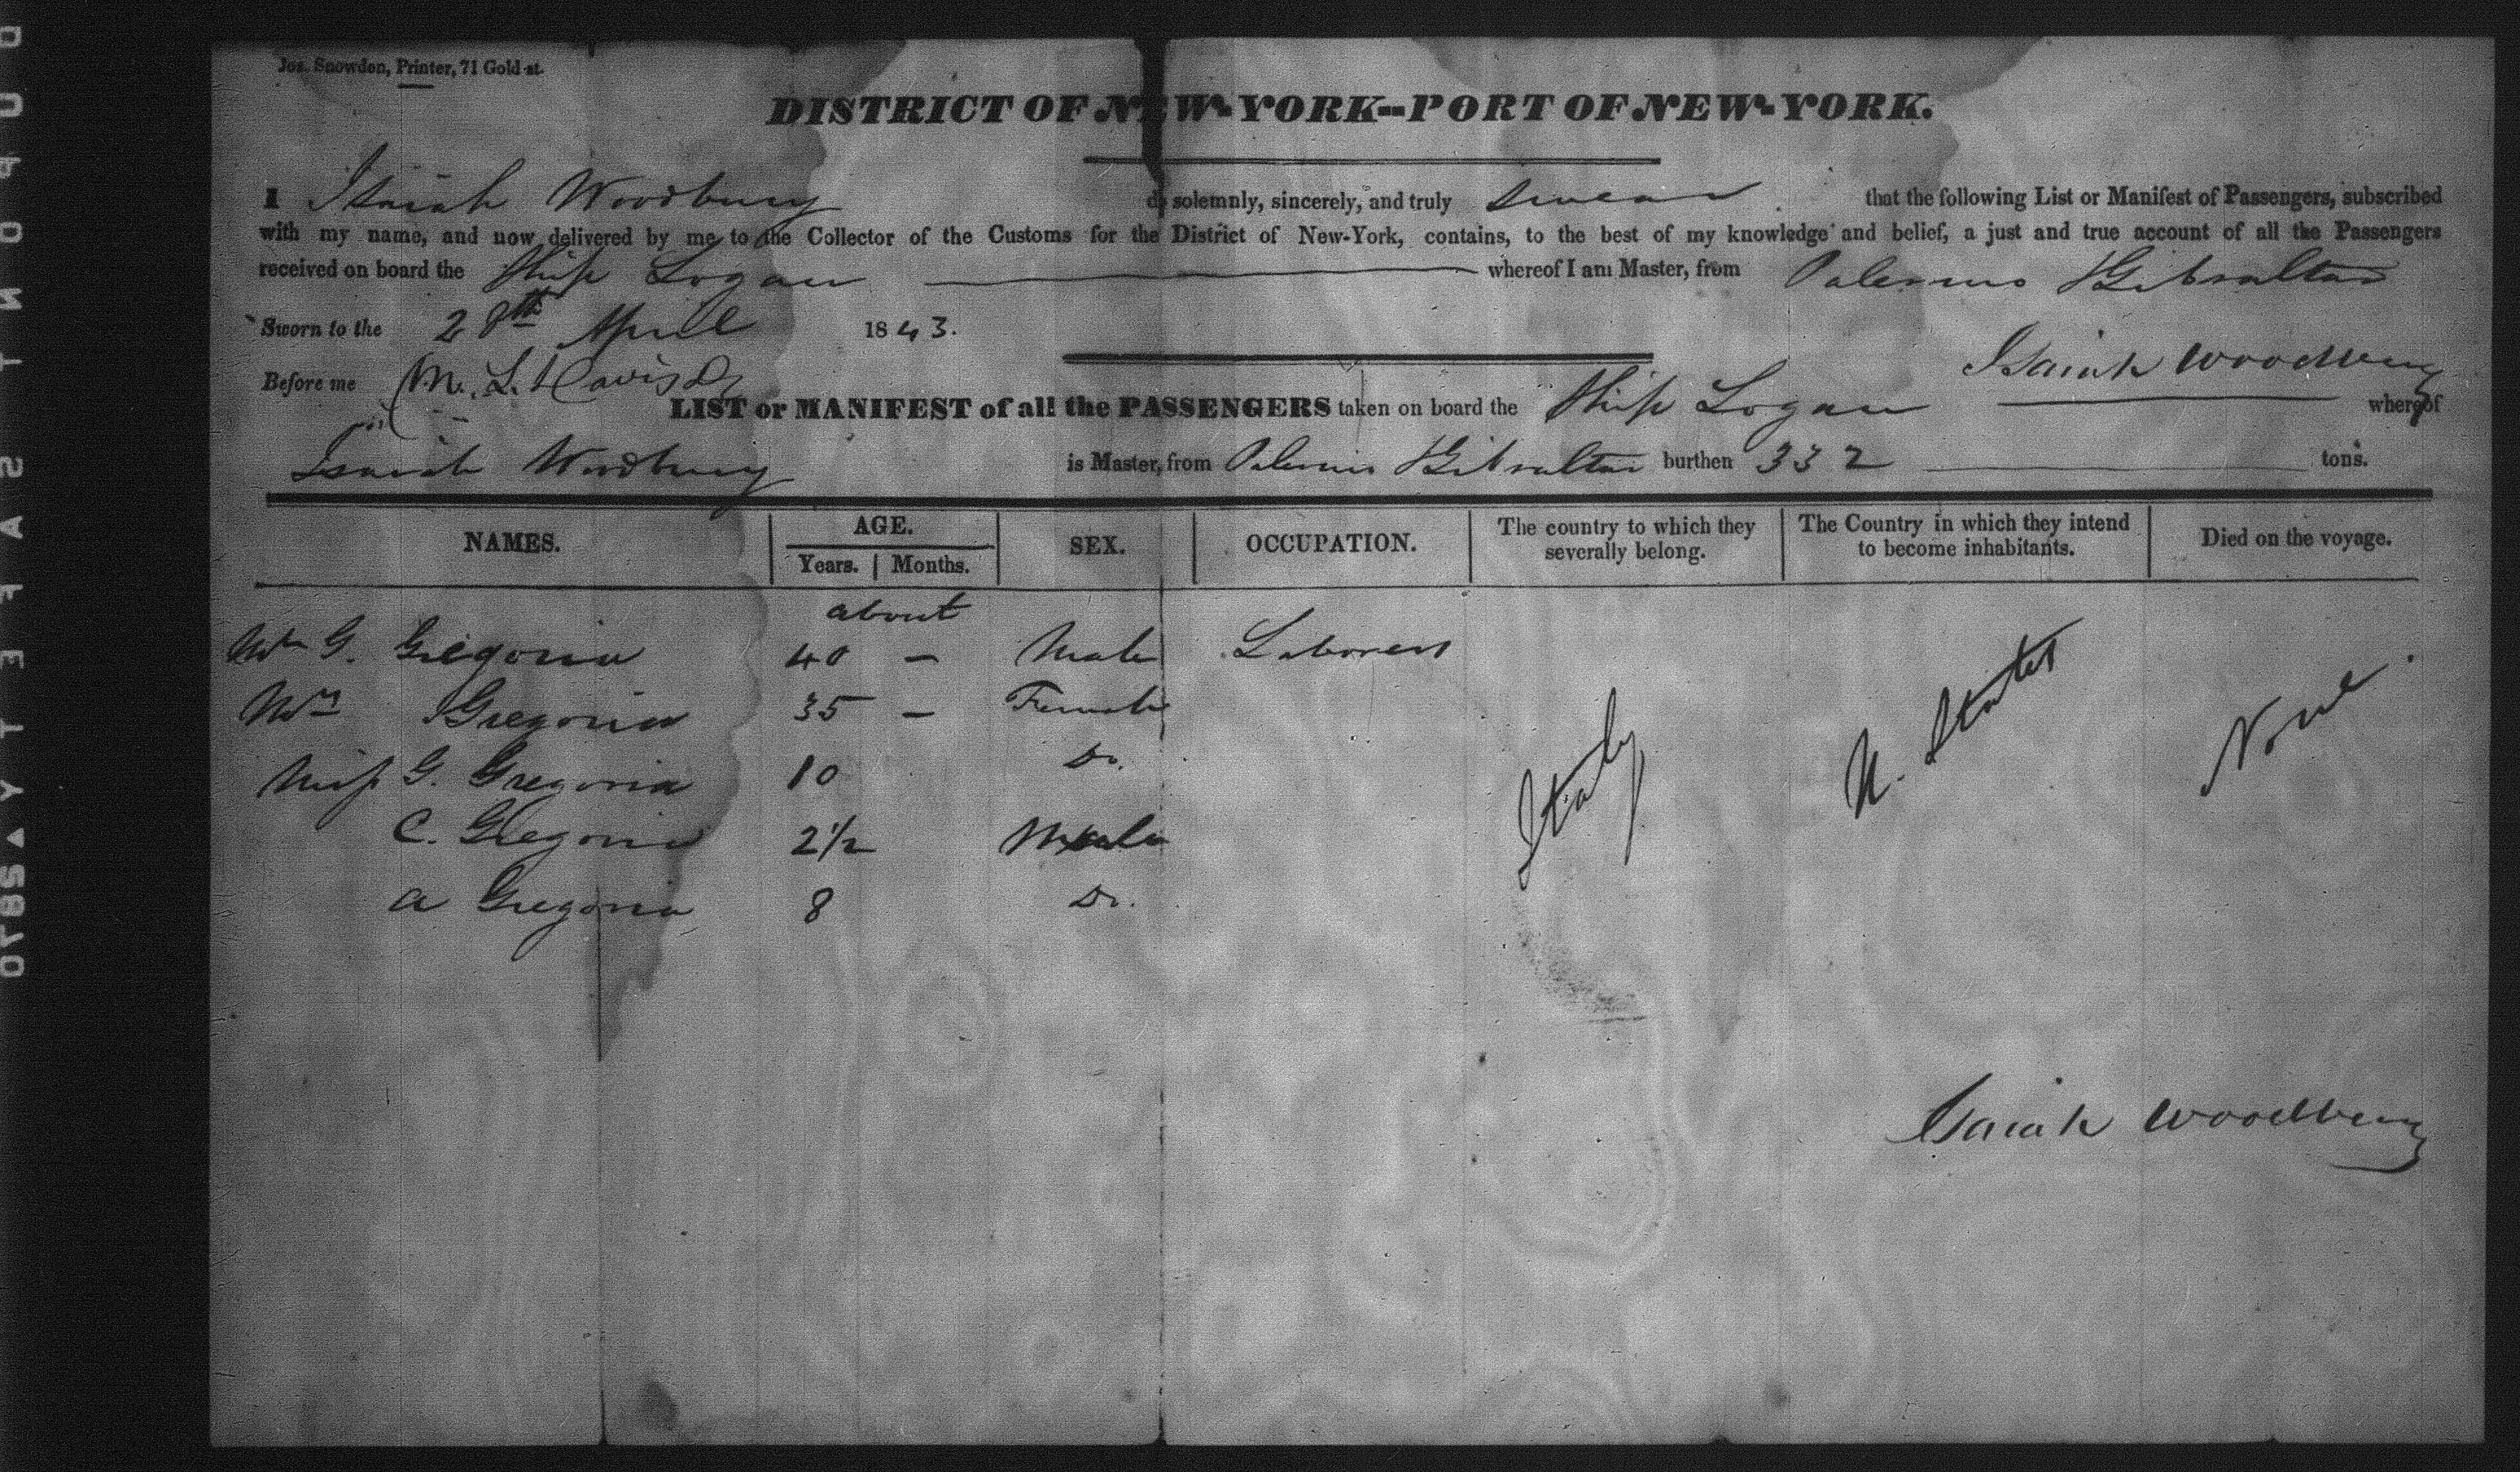 Jos. Snowden, Printer, 71 Gold-st.
DISTRICT OF NEW-YORK--PORT OF NEW-YORK.
I Isaiah Woodbury do solemnly, sincerely, and truly swear that the following List or Manifest of Passengers, subscribed
with my name, and now delivered by me to the Collector of the Customs for the District of New-York, contains, to the best of my knowledge and belief, a just and true account of all the Passengers
received on board the Ship Logan whereof I am Master, from Palermo & Gibraltar
Sworn to the 28th April 1843.
Isaiah Woodbury
Before me M. L. Davis
LIST or MANIFEST of all the PASSENGERS taken on board the Ship Logan whereof
Isaiah Woodbury is Master, from Palermo & Gibraltar burthen 332 tons.
NAMES. AGE. Years. Months. SEX. OCCUPATION. The country to which they severally belong. The Country in which they intend to become inhabitants. Died on the voyage.
about
G. Gregoria 40 – Male Laborers
Gregoria 35 – Female
Miss G. Gregoria 10 Do.
C. Gregoria 2½ Male
A Gregoria 8 Do.
Italy U. States None.
Isaiah Woodbury
DON'T SAFETY